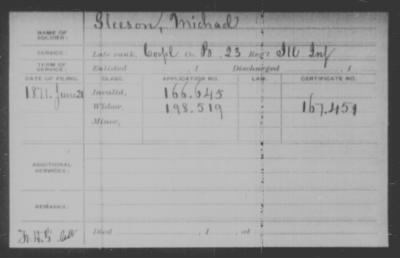 NAME OF SOLDIER: Gleeson, Michael
SERVICE: Late rank, Corpl Co. B. 23 Reg't Ill Inf
TERM OF SERVICE: Enlisted , 1 Discharged , 1
DATE OF FILING. CLASS. APPLICATION NO. LAW. CERTIFICATE NO.
1871. June 20 Invalid, 166.645
Widow, 198.519 167.451
Minor,
ADDITIONAL SERVICES:
REMARKS:
Died , 1 , at